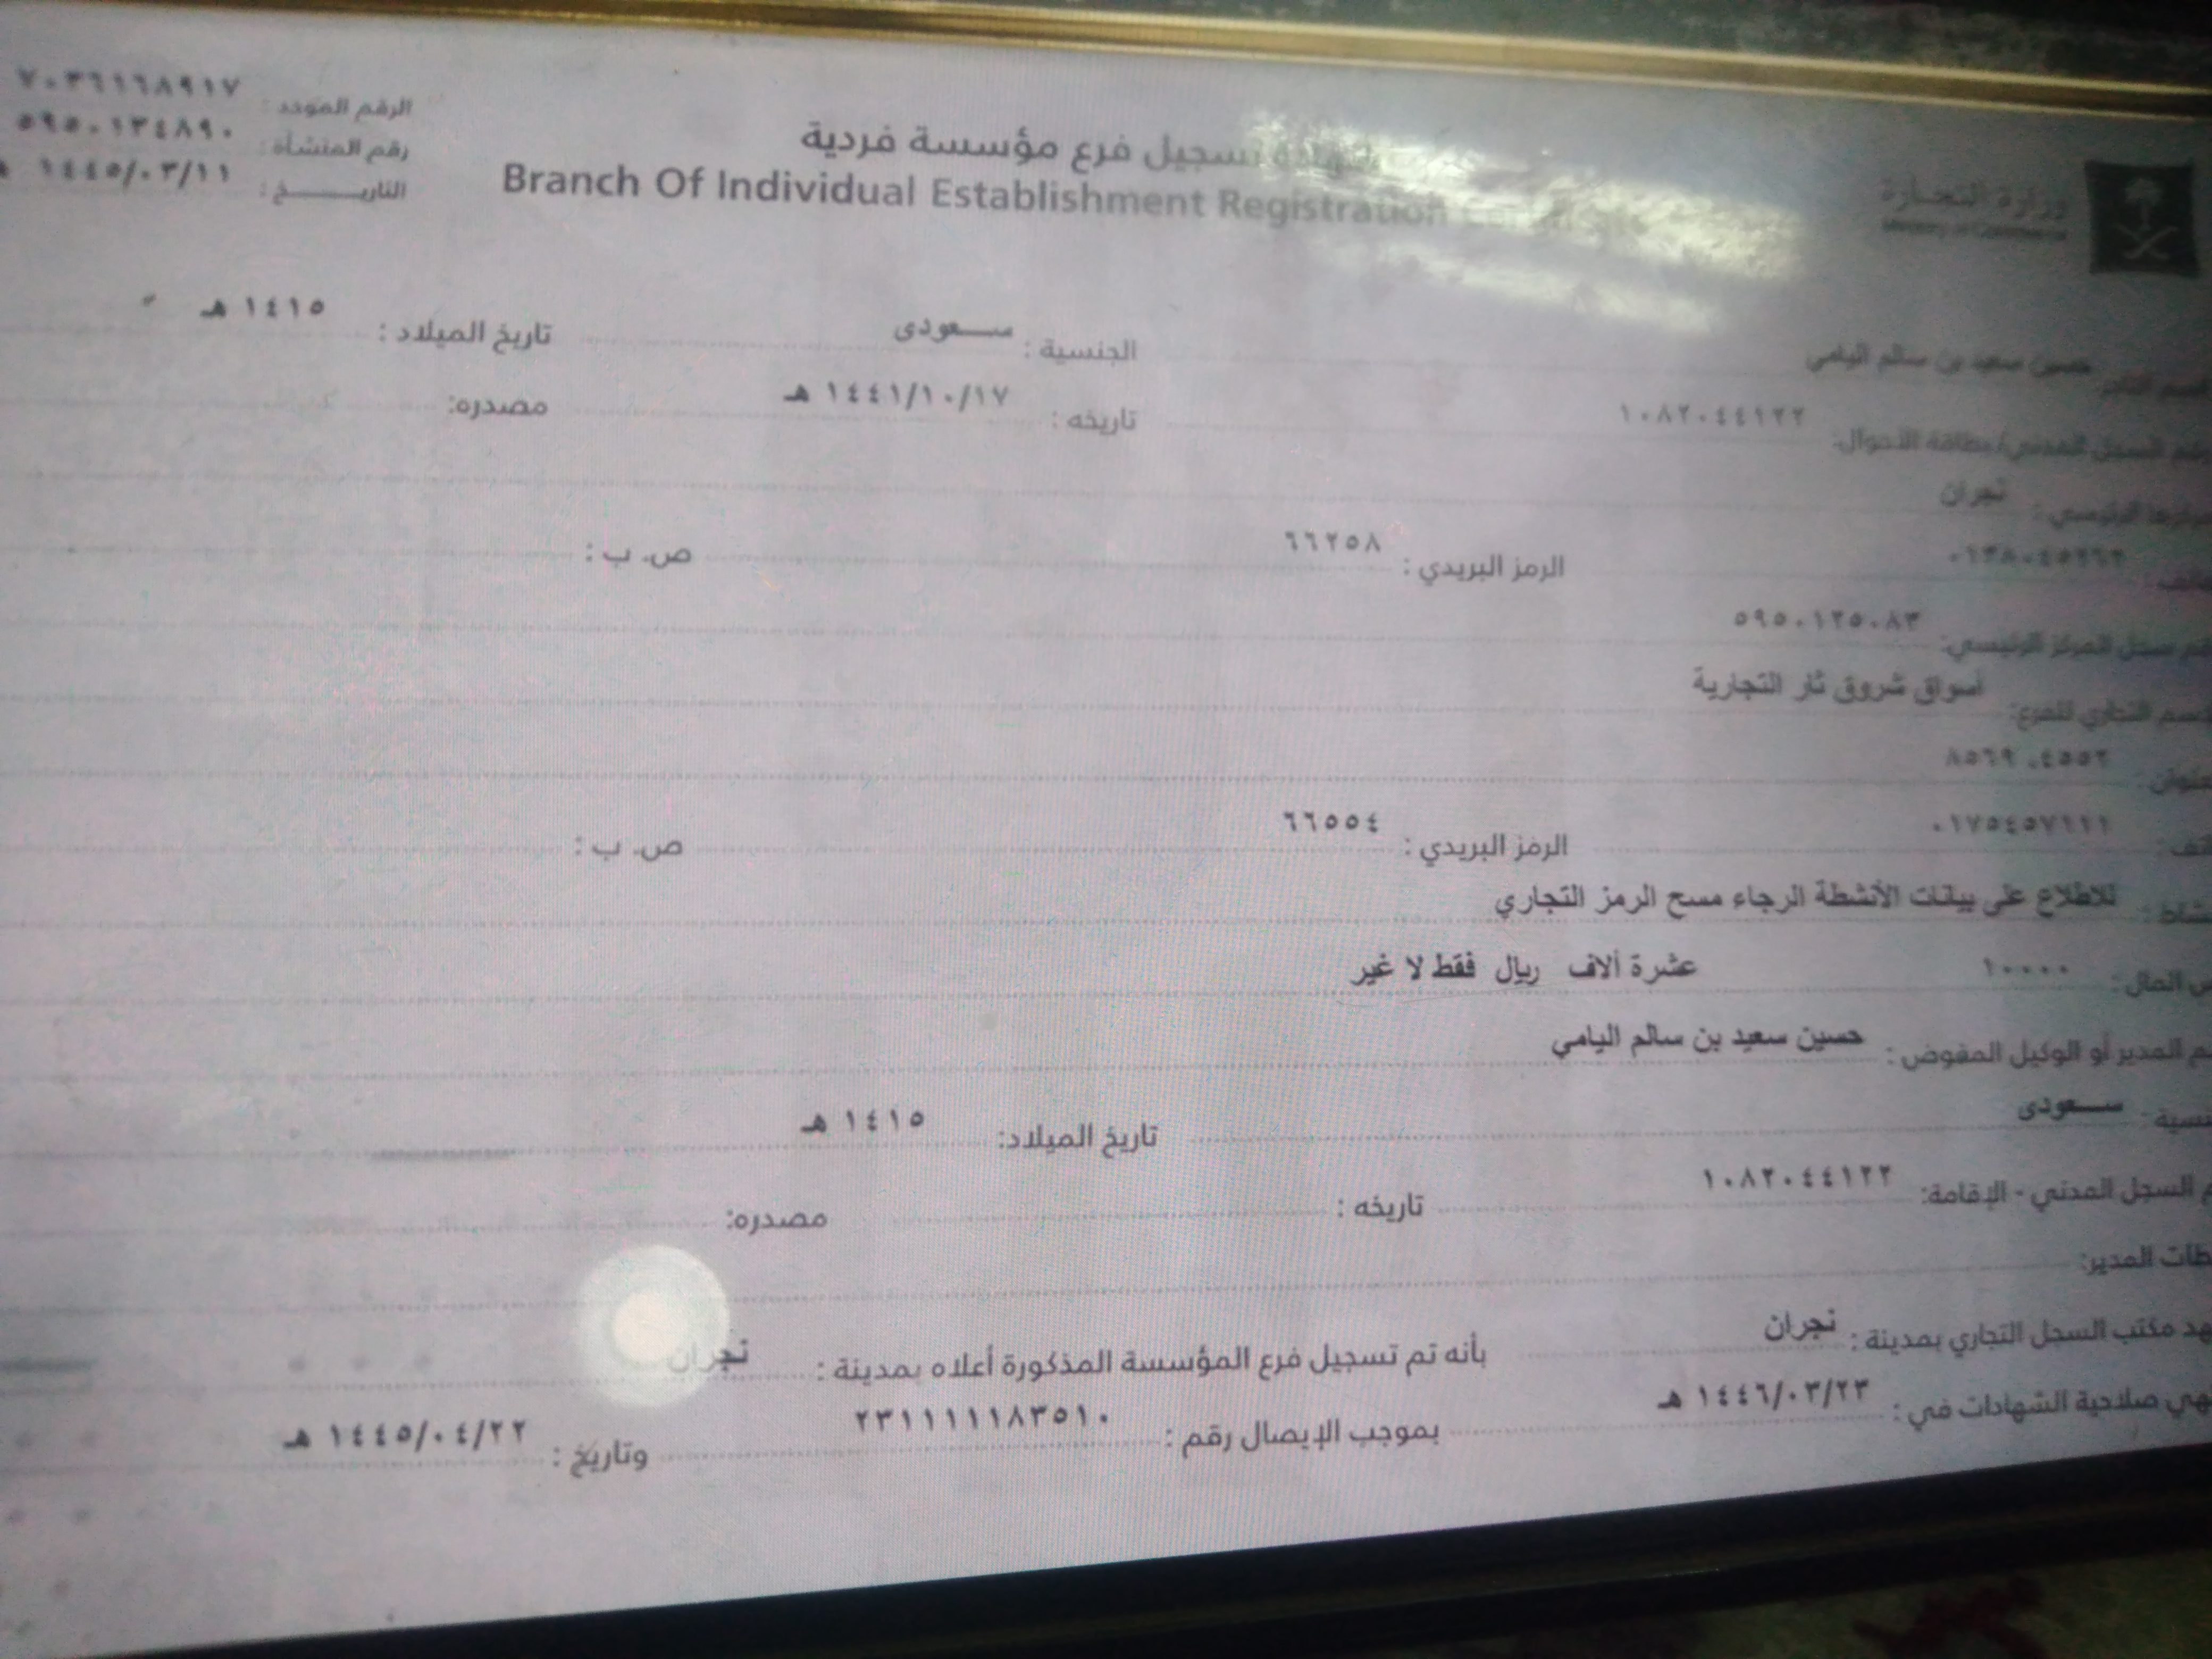 وزارة التجارة
Ministry of Commerce
تسجيل فرع مؤسسة فردية
Branch Of Individual Establishment Registration
الرقم الموحد : ٧٠٣٦١٦٨٩١٧
رقم المنشأة : ٥٩٥٠١٣٤٨٩٠
التاريـــــــخ : ١٤٤٥/٠٣/١١
حسين سعيد بن سالم اليامي الجنسية : ســـعودى تاريخ الميلاد : ١٤١٥ هـ
السجل المدني/بطاقة الأحوال: ١٠٨٢٠٤٤١٢٢ تاريخه : ١٤٤١/١٠/١٧ هـ مصدره:
الرئيسي : نجران
الرمز البريدي : ٦٦٢٥٨ ص. ب :
سجل المركز الرئيسي: ٥٩٥٠١٢٥٠٨٣
التجاري للفرع: أسواق شروق ثار التجارية
٨٥٦٩ ٠٤٥٥٢
٠١٧٥٤٥٧١١١ الرمز البريدي : ٦٦٥٥٤ ص. ب :
للاطلاع على بيانات الأنشطة الرجاء مسح الرمز التجاري
المال : ١٠٠٠٠ عشرة ألاف ريال فقط لا غير
المدير أو الوكيل المفوض : حسين سعيد بن سالم اليامي
ســـعودى تاريخ الميلاد: ١٤١٥ هـ
السجل المدني - الإقامة: ١٠٨٢٠٤٤١٢٢ تاريخه : مصدره:
المدير:
مكتب السجل التجاري بمدينة : نجران بأنه تم تسجيل فرع المؤسسة المذكورة أعلاه بمدينة : نجران
صلاحية الشهادات في : ١٤٤٦/٠٣/٢٣ هـ بموجب الإيصال رقم : ٢٣١١١١١٨٣٥١٠ وتاريخ : ١٤٤٥/٠٤/٢٢ هـ